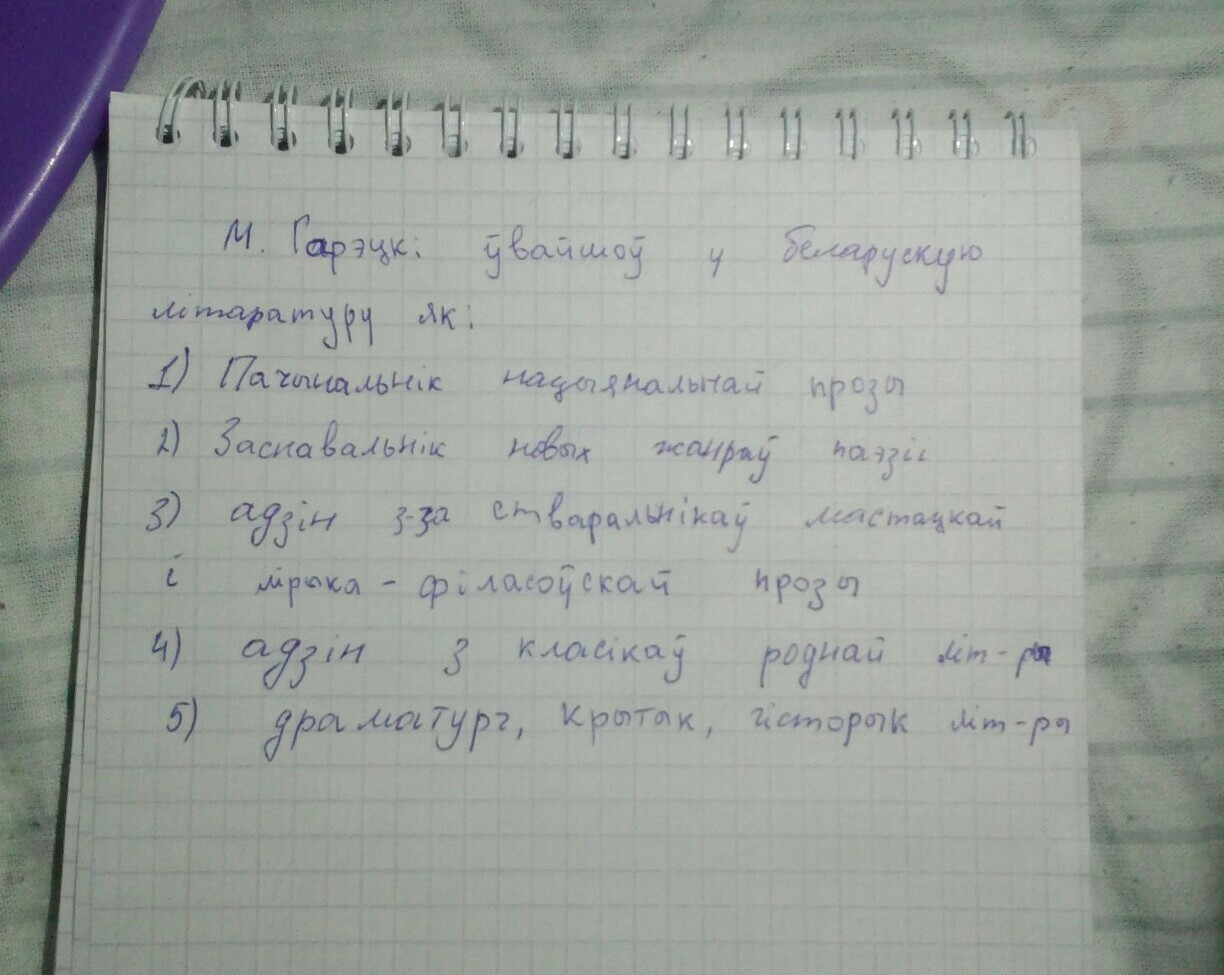 М. Гарэцкі ўвайшоў у беларускую
літаратуру як:
1) Пачынальнік нацыянальнай прозы
2) Заснавальнік новых жанраў паэзіі
3) адзін з-за стваральнікаў мастацкай
і лірыка - філасоўскай прозы
4) адзін з класікаў роднай літ-ры
5) драматург, крытык, гісторык літ-ры